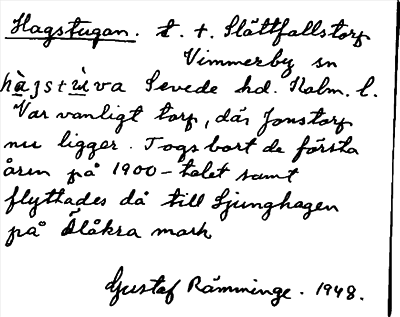 Hagstugan. t. t. Slättfallstorp
Vimmerby sn
hàgstùva Sevede hd. Kalm. l.
Var vanligt torp, där Jonstorp
nu ligger. Togs bort de första
åren på 1900-talet samt
flyttades då till Ljunghagen
på Ålåkra mark
Gustaf Rämminge. 1948.